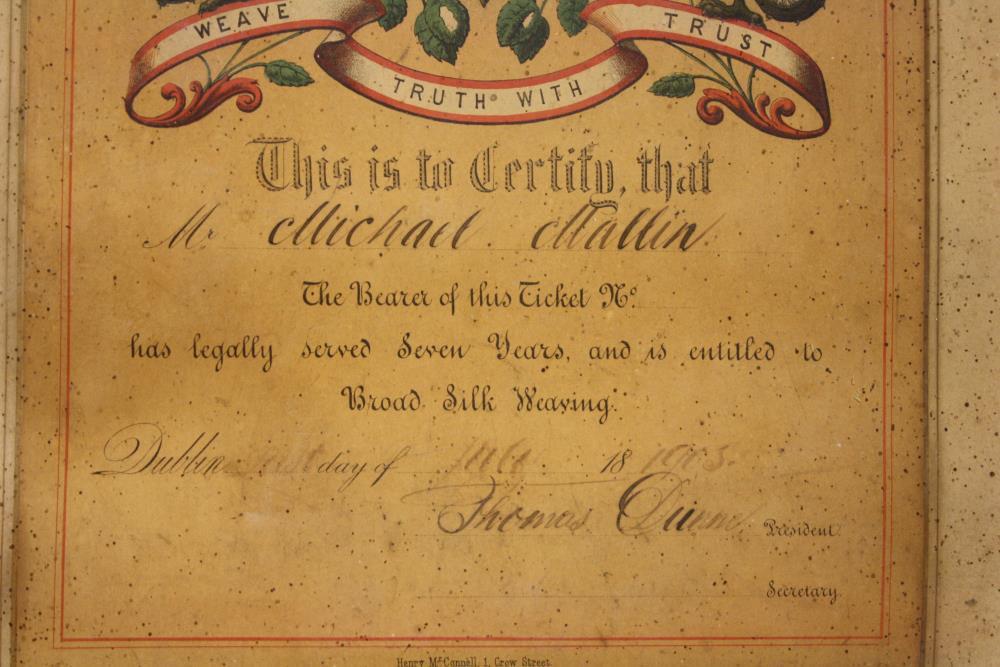 WEAVE
TRUTH WITH
TRUST
This is to Certify, that
Mr Michael Mallin
The Bearer of this Ticket No.
has legally served Seven Years, and is entitled to
Broad Silk Weaving.
Dublin day of July 18 1903.
Thomas Dunne President.
Secretary.
Henry McConnell, 1, Crow Street.